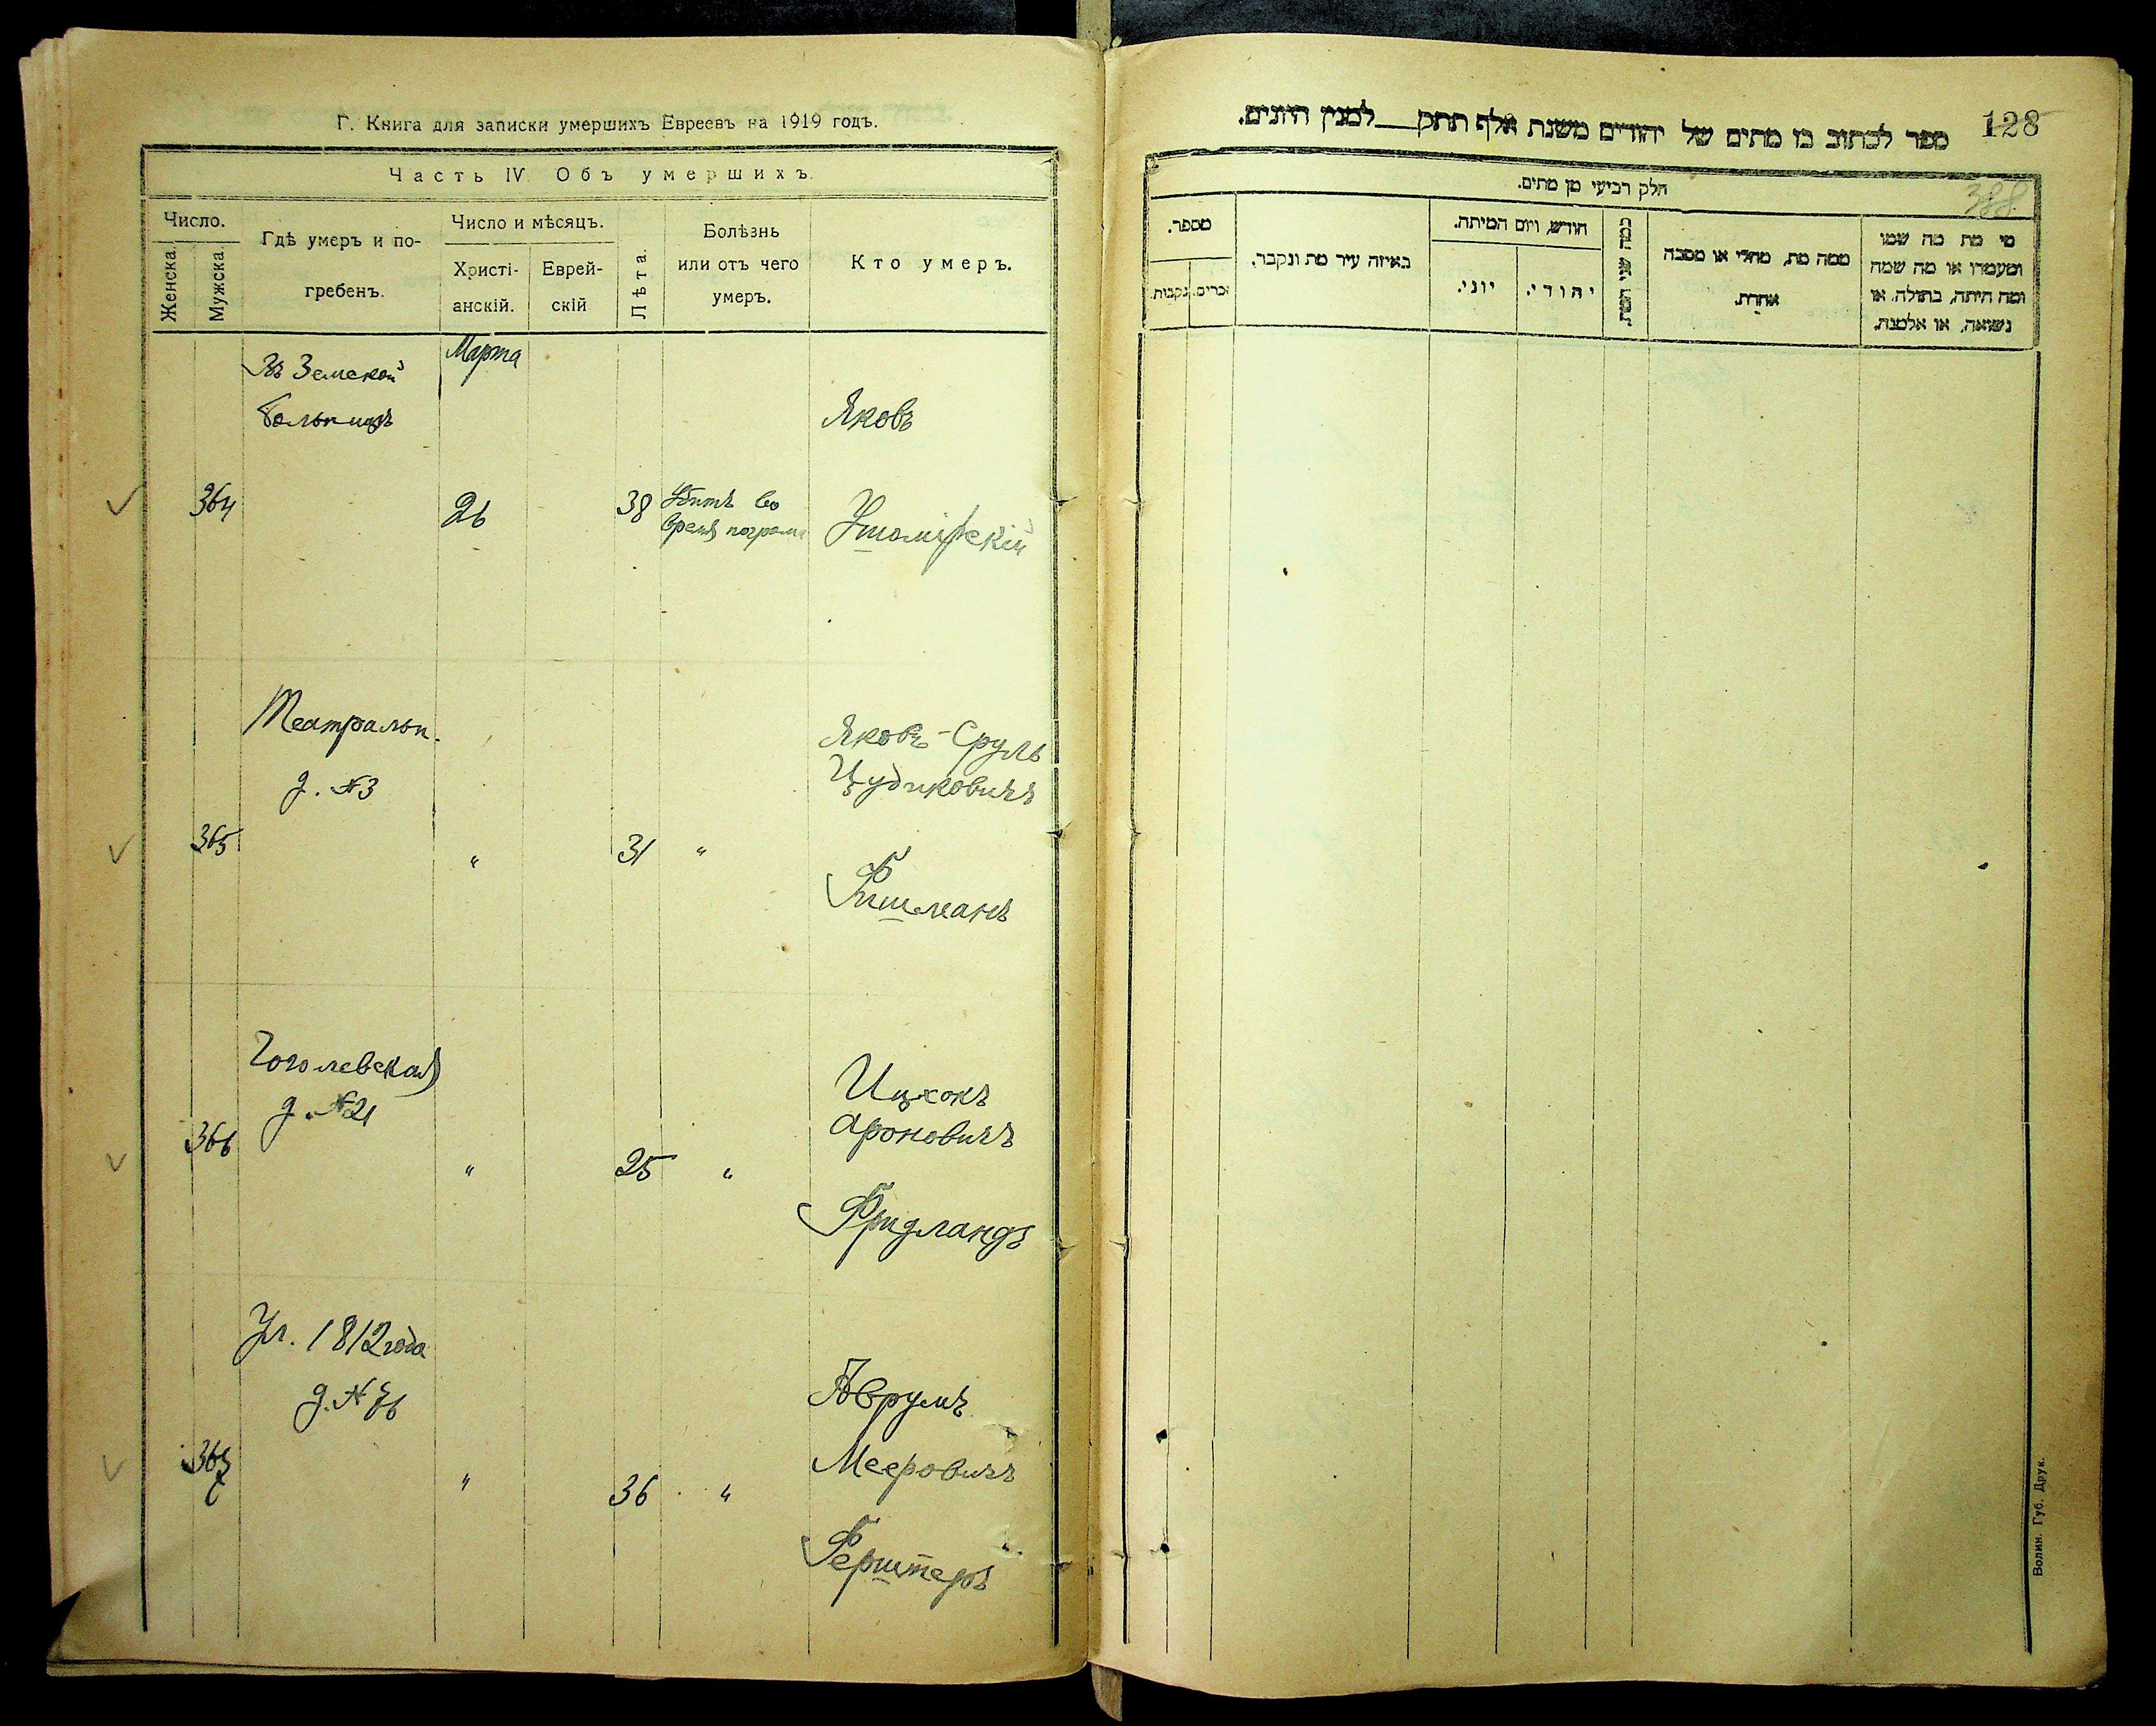 Г. Книга для записки умершихъ Евреевъ на 1919 годъ.
Часть IV Объ умершихъ.
Число.
Женска.
Мужска.
Гдѣ умеръ и по-
гребенъ.
Число и мѣсяцъ.
Христі-
анскій.
Еврей-
скій
Лѣта.
Болѣзнь
или отъ чего
умеръ.
Кто умеръ.
Въ Земской
больницѣ
Марта
Яковъ
364
26
38
Убитъ во
время погрома
Театральн.
д. №3
Яковъ-Сруль
365
"
31
"
Фишманъ
Гоголевская
д. №21
Ицхокъ
Ароновичъ
366
"
25
"
Фридландъ
Ул. 1812 года
д. №
Аврумъ
Мееровичъ
367
"
36
"
Ферштеръ
128
ספר לכתוב בו מתים של יהודים משנת אלף תתק למנין היונים.
388
חלק רביעי מן מתים.
מספר.
זכרים.
נקבות.
באיזה עיר מת ונקבר.
חודש, ויום המיתה.
יוני.
יהודי.
כמה שני המת.
ממה מת, מחלי או מסבה
אחרת.
מי מת מה שמו
ומעמדו או מה שמה
ומה היתה, בתולה, או
נשואה, או אלמנה.
Волин. Губ. Друк.